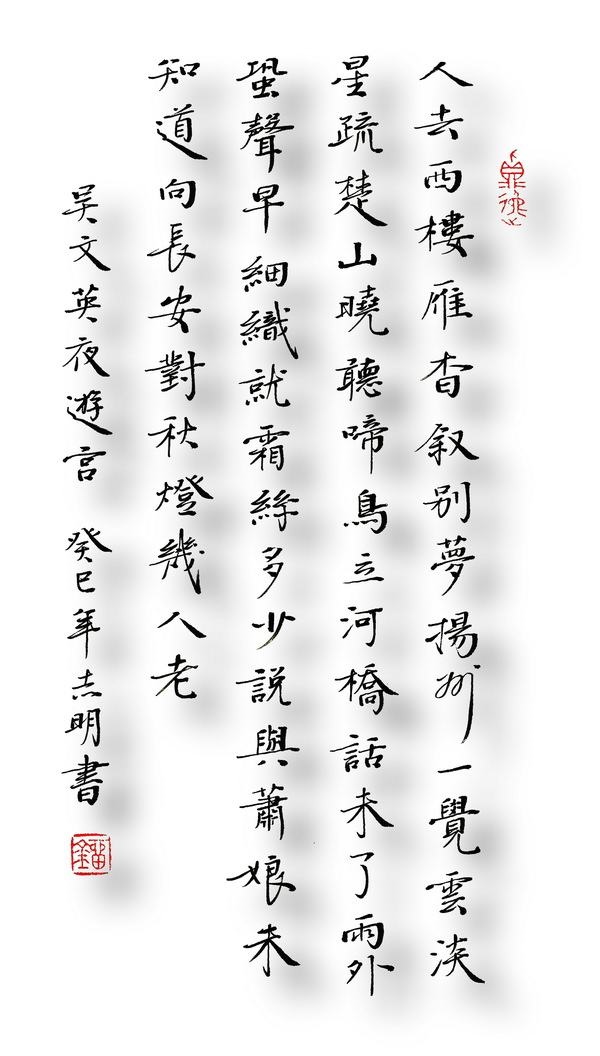 人去西樓雁杳叙别夢揚州一覺雲淡
星疏楚山曉聽啼鳥立河橋話未了雨外
蛩聲早細織就霜絲多少説與蕭娘未
知道向長安對秋燈幾人老
吳文英夜遊宮 癸巳年志明書